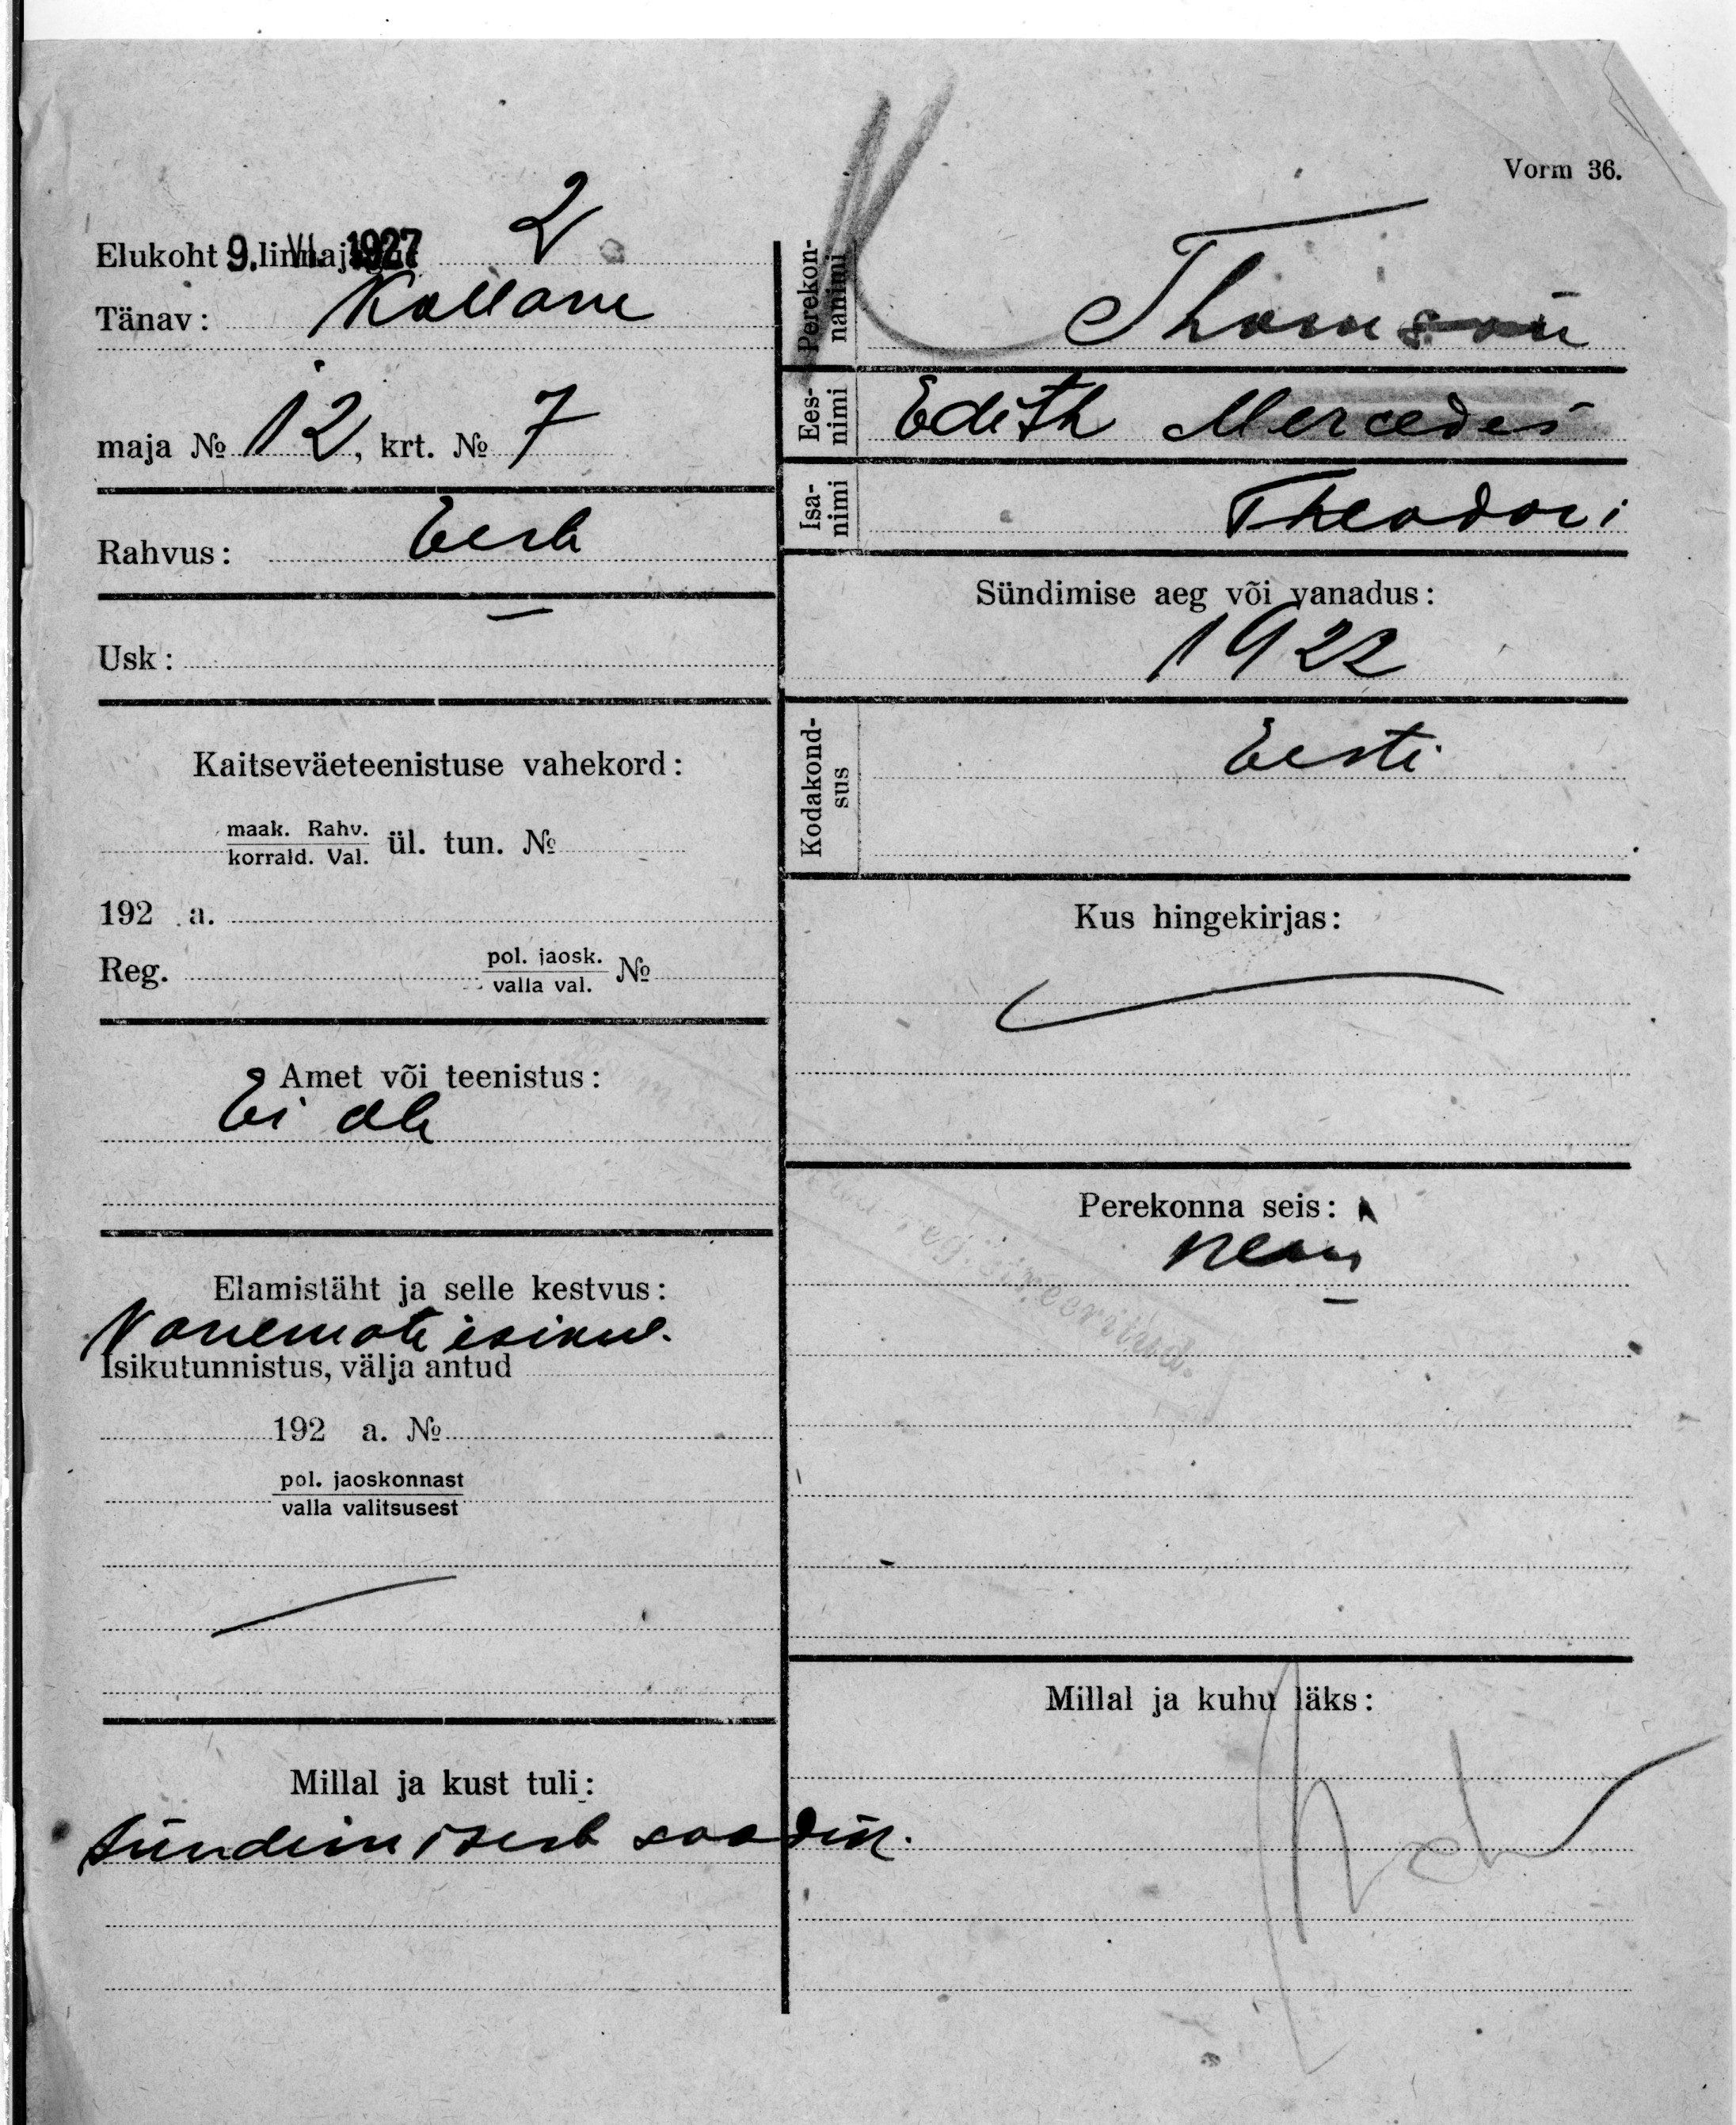 Vorm 36.
Elukoht linnajagu: 2
9. VI. 1927
Tänav: Kollane
maja № 12, krt. № 7
Rahvus: Eesti
Usk: —
Kaitseväeteenistuse vahekord:
maak. Rahv.
korrald. Val. ül. tun. №
192 a.
Reg. pol. jaosk.
valla val. №
Amet või teenistus:
Ei ole
Elamistäht ja selle kestvus:
Vanemate isikut.
Isikutunnistus, välja antud
192 a. №
pol. jaoskonnast
valla valitsusest
Millal ja kust tuli:
sündimisest saadik.
Perekon-
nanimi Thomson
Ees-
nimi Edith Mercedes
Isa-
nimi Theodori
Sündimise aeg või vanadus:
1922
Kodakond-
sus Eesti
Kus hingekirjas:
Perekonna seis:
Millal ja kuhu läks: